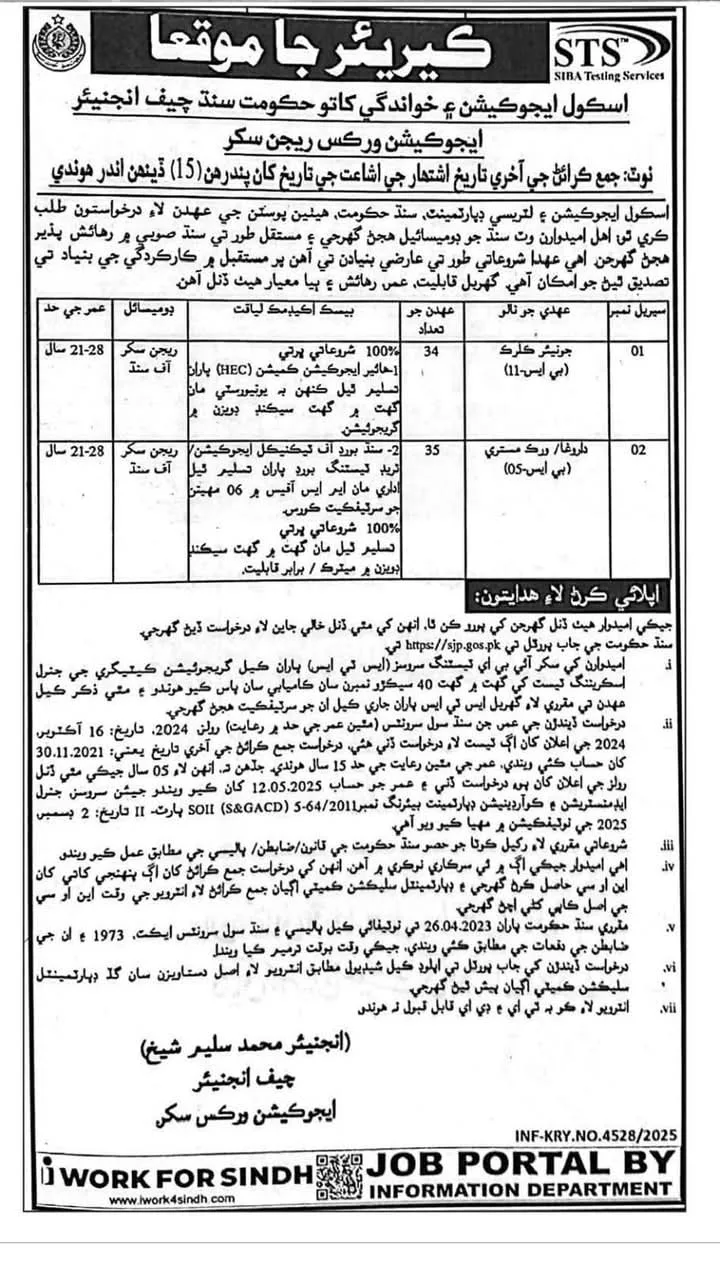 ڪيريئر جا موقعا
STS™
SIBA Testing Services
اسڪول ايجوڪيشن ۽ خواندگي کاتو حڪومت سنڌ چيف انجنيئر
ايجوڪيشن ورڪس ريجن سکر
نوٽ: جمع ڪرائڻ جي آخري تاريخ اشتهار جي اشاعت جي تاريخ کان پندرهن (15) ڏينهن اندر هوندي
اسڪول ايجوڪيشن ۽ لٽريسي ڊپارٽمينٽ، سنڌ حڪومت، هيٺين پوسٽن جي عهدن لاءِ درخواستون طلب
ڪري ٿو: اهل اميدوارن وٽ سنڌ جو ڊوميسائيل هجڻ گهرجي ۽ مستقل طور تي سنڌ صوبي ۾ رهائش پذير
هجڻ گهرجن. اهي عهدا شروعاتي طور تي عارضي بنيادن تي آهن پر مستقبل ۾ ڪارڪردگي جي بنياد تي
تصديق ٿيڻ جو امڪان آهي. گهربل قابليت، عمر، رهائش ۽ ٻيا معيار هيٺ ڏنل آهن.
سيريل نمبر
عهدي جو نالو
عهدن جو
تعداد
بيسڪ اڪيڊمڪ لياقت
ڊوميسائل
عمر جي حد
01
جونيئر ڪلرڪ
(بي ايس-11)
34
100% شروعاتي ڀرتي
1-هائير ايجوڪيشن ڪميشن (HEC) پاران
تسليم ٿيل ڪنهن به يونيورسٽي مان
گهٽ ۾ گهٽ سيڪنڊ ڊويزن ۾
گريجوئيشن.
ريجن سکر
آف سنڌ
21-28 سال
02
داروغا/ ورڪ مستري
(بي ايس-05)
35
2- سنڌ بورڊ آف ٽيڪنيڪل ايجوڪيشن/
ٽريڊ ٽيسٽنگ بورڊ پاران تسليم ٿيل
اداري مان ايم ايس آفيس ۾ 06 مهينن
جو سرٽيفڪيٽ ڪورس.
100% شروعاتي ڀرتي
تسليم ٿيل مان گهٽ ۾ گهٽ سيڪنڊ
ڊويزن ۾ ميٽرڪ / برابر قابليت.
ريجن سکر
آف سنڌ
21-28 سال
اپلائي ڪرڻ لاءِ هدايتون:
جيڪي اميدوار هيٺ ڏنل گهرجن کي پورو ڪن ٿا، انهن کي مٿي ڏنل خالي جاين لاءِ درخواست ڏيڻ گهرجي.
سنڌ حڪومت جي جاب پورٽل تي https://sjp.gos.pk تي.
i. اميدوارن کي سکر آئي بي اي ٽيسٽنگ سروسز (ايس ٽي ايس) پاران ڪيل گريجوئيشن ڪيٽيگري جي جنرل
اسڪريننگ ٽيسٽ کي گهٽ ۾ گهٽ 40 سيڪڙو نمبرن سان ڪاميابي سان پاس ڪيو هوندو ۽ مٿي ذڪر ڪيل
عهدن تي مقرري لاءِ گهربل ايس ٽي ايس پاران جاري ڪيل ان جو سرٽيفڪيٽ هجڻ گهرجي.
ii. درخواست ڏيندڙن جي عمر، جن سنڌ سول سرونٽس (مٿين عمر جي حد ۾ رعايت) رولز 2024، تاريخ: 16 آڪٽوبر،
2024 جي اعلان کان اڳ ٽيسٽ لاءِ درخواست ڏني هئي، درخواست جمع ڪرائڻ جي آخري تاريخ يعني: 30.11.2021
کان حساب ڪئي ويندي، عمر جي مٿين رعايت جي حد 15 سال هوندي. جڏهن ته، انهن لاءِ 05 سال جيڪي مٿي ڏنل
رولز جي اعلان کان پوءِ درخواست ڏني ۽ عمر جو حساب 12.05.2025 کان ڪيو ويندو جيئن سروسز، جنرل
ايڊمنسٽريشن ۽ ڪوآرڊينيشن ڊپارٽمينٽ بيئرنگ نمبر SOII (S&GACD) 5-64/2011 پارٽ- II تاريخ: 2 ڊسمبر،
2025 جي نوٽيفڪيشن ۾ مهيا ڪيو ويو آهي.
iii. شروعاتي مقرري لاءِ رکيل ڪوٽا جو حصو سنڌ حڪومت جي قانون/ضابطن/ پاليسي جي مطابق عمل ڪيو ويندو
iv. اهي اميدوار جيڪي اڳ ۾ ئي سرڪاري نوڪري ۾ آهن، انهن کي درخواست جمع ڪرائڻ کان اڳ پنهنجي کاتي کان
اين او سي حاصل ڪرڻ گهرجي ۽ ڊپارٽمينٽل سليڪشن ڪميٽي اڳيان جمع ڪرائڻ لاءِ انٽرويو جي وقت اين او سي
جي اصل ڪاپي کڻي اچڻ گهرجي.
v. مقرري سنڌ حڪومت پاران 26.04.2023 تي نوٽيفائي ڪيل پاليسي ۽ سنڌ سول سرونٽس ايڪٽ، 1973 ۽ ان جي
ضابطن جي دفعات جي مطابق ڪئي ويندي، جيڪي وقت بوقت ترميم ڪيا ويندا.
vi. درخواست ڏيندڙن کي جاب پورٽل تي اپلوڊ ڪيل شيڊيول مطابق انٽرويو لاءِ اصل دستاويزن سان گڏ ڊپارٽمينٽل
سليڪشن ڪميٽي اڳيان پيش ٿيڻ گهرجي.
vii. انٽرويو لاءِ ڪو به ٽي اي ۽ ڊي اي قابل قبول نه هوندو.
(انجنيئر محمد سليم شيخ)
چيف انجنيئر
ايجوڪيشن ورڪس سکر.
INF-KRY.NO.4528/2025
i WORK FOR SINDH
www.iwork4sindh.com
JOB PORTAL BY
INFORMATION DEPARTMENT